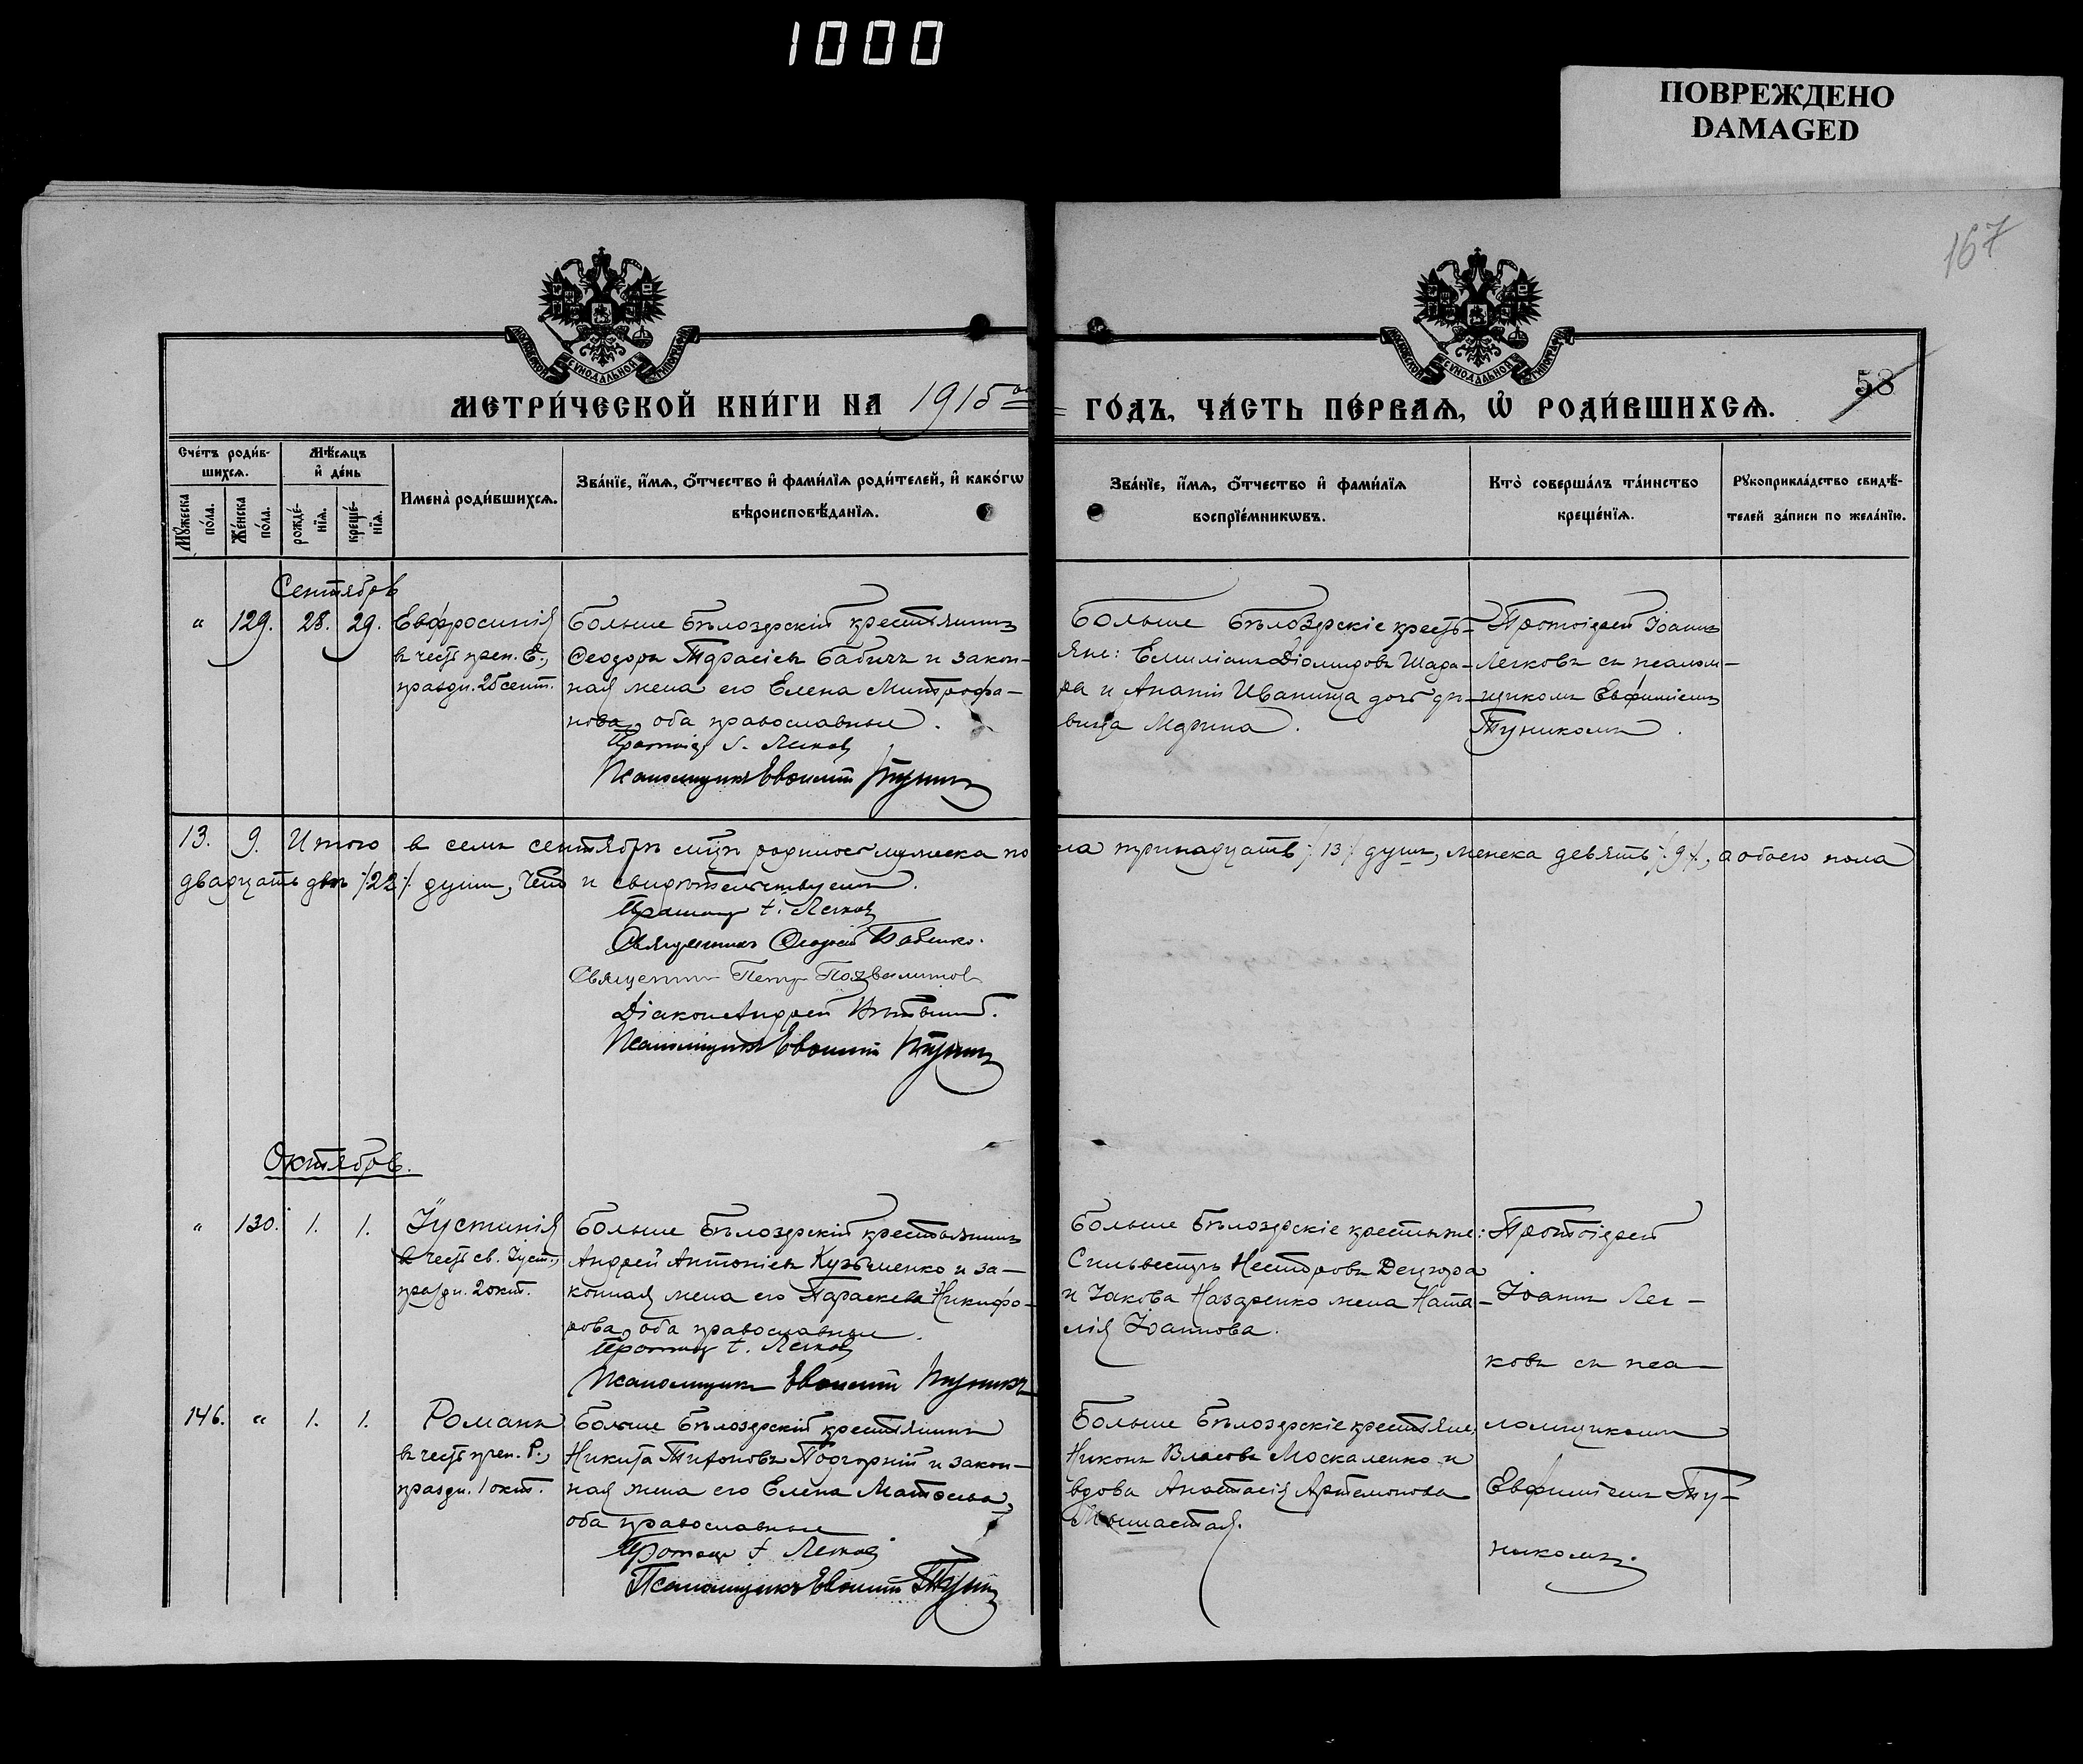 1000
ПОВРЕЖДЕНО
DAMAGED
167
МОСКОВСКОЙ СУНОДАЛЬНОЙ ТИПОГРАФІИ
МОСКОВСКОЙ СУНОДАЛЬНОЙ ТИПОГРАФІИ
58
МЕТРИ́ЧЕСКОЙ КНИ́ГИ НА 1915 ГО́ДЪ, ЧА́СТЬ ПЕ́РВАѦ, Ѡ҆ РОДИ́ВШИХСѦ.
Сче́тъ роди́в-
шихсѧ.
Мꙋ́жеска
по́ла.
Же́нска
по́ла.
Мѣ́сѧцъ
и҆ де́нь
рожде́-
нїѧ.
креще́-
нїѧ.
Имена̀ роди́вшихсѧ.
Зва́нїе, и҆́мѧ, ѻ҆́тчество и҆ фами́лїѧ роди́телей, и҆ како́гѡ
вѣроисповѣ́данїѧ.
Зва́нїе, и҆́мѧ, ѻ҆́тчество и҆ фами́лїѧ
воспрїе́мникѡвъ.
Кто̀ соверша́лъ та́инство
креще́нїѧ.
Рꙋкоприкла́дство свидѣ́-
телей за́писи по жела́нїю.
Сентябрь
" 129. 28. 29. Евфросинія
въ честь преп. Е.,
праздн. 25 сент.
Больше Бѣлозерскій крестьянинъ
Ѳеодоръ Тарасіевъ Бабичъ и закон-
ная жена его Елена Митрофа-
нова, оба православные.
Протоіер. І. Легковъ
Псаломщикъ Евѳимій Туникъ
Больше Бѣлозерскіе кресть-
яне: Емиліанъ Діомидовъ Шара-
ра и Ананіи Иванища дочь дѣ-
вица Марина.
Протоіерей Іоаннъ
Легковъ съ псалом-
щикомъ Евфиміемъ
Туникомъ.
13. 9. Итого въ семъ сентябрѣ м-цѣ родилось мужеска пола тринадцать /13/ душъ, женска девять /9/, а обоего пола
двадцать двѣ /22/ души, чего и свидѣтельствуемъ.
Протоіер. І. Легковъ
Священникъ Ѳеодосій Бабенко.
Священникъ Петръ
Діаконъ Андрей
Псаломщикъ Евѳимій Туникъ
Октябрь.
" 130. 1. 1. Іустинія
въ честь св. Іуст.,
праздн. 2 окт.
Больше Бѣлозерскій крестьянинъ
Андрей Антоніевъ Кузьменко и за-
конная жена его Параскева Никифо-
рова, оба православные.
Протоіер. І. Легковъ
Псаломщикъ Евѳимій Туникъ
Больше Бѣлозерскіе крестьяне:
Сильвестръ Несторовъ Децюра
и Іакова Назаренко жена Ната-
лія Іоаннова.
Протоіерей
Іоаннъ Лег-
ковъ съ пса-
146. " 1. 1. Романъ
въ честь преп. Р.,
праздн. 1 окт.
Больше Бѣлозерскій крестьянинъ
Никита Тихоновъ Подгорній и закон-
ная жена его Елена Матѳеева,
оба православные
Протоіер. І. Легковъ
Псаломщикъ Евѳимій Туникъ
Больше Бѣлозерскіе крестьяне,
Никонъ Власовъ Москаленко и
вдова Анастасія Артемонова
ломщикомъ
Евфиміемъ Ту-
никомъ.